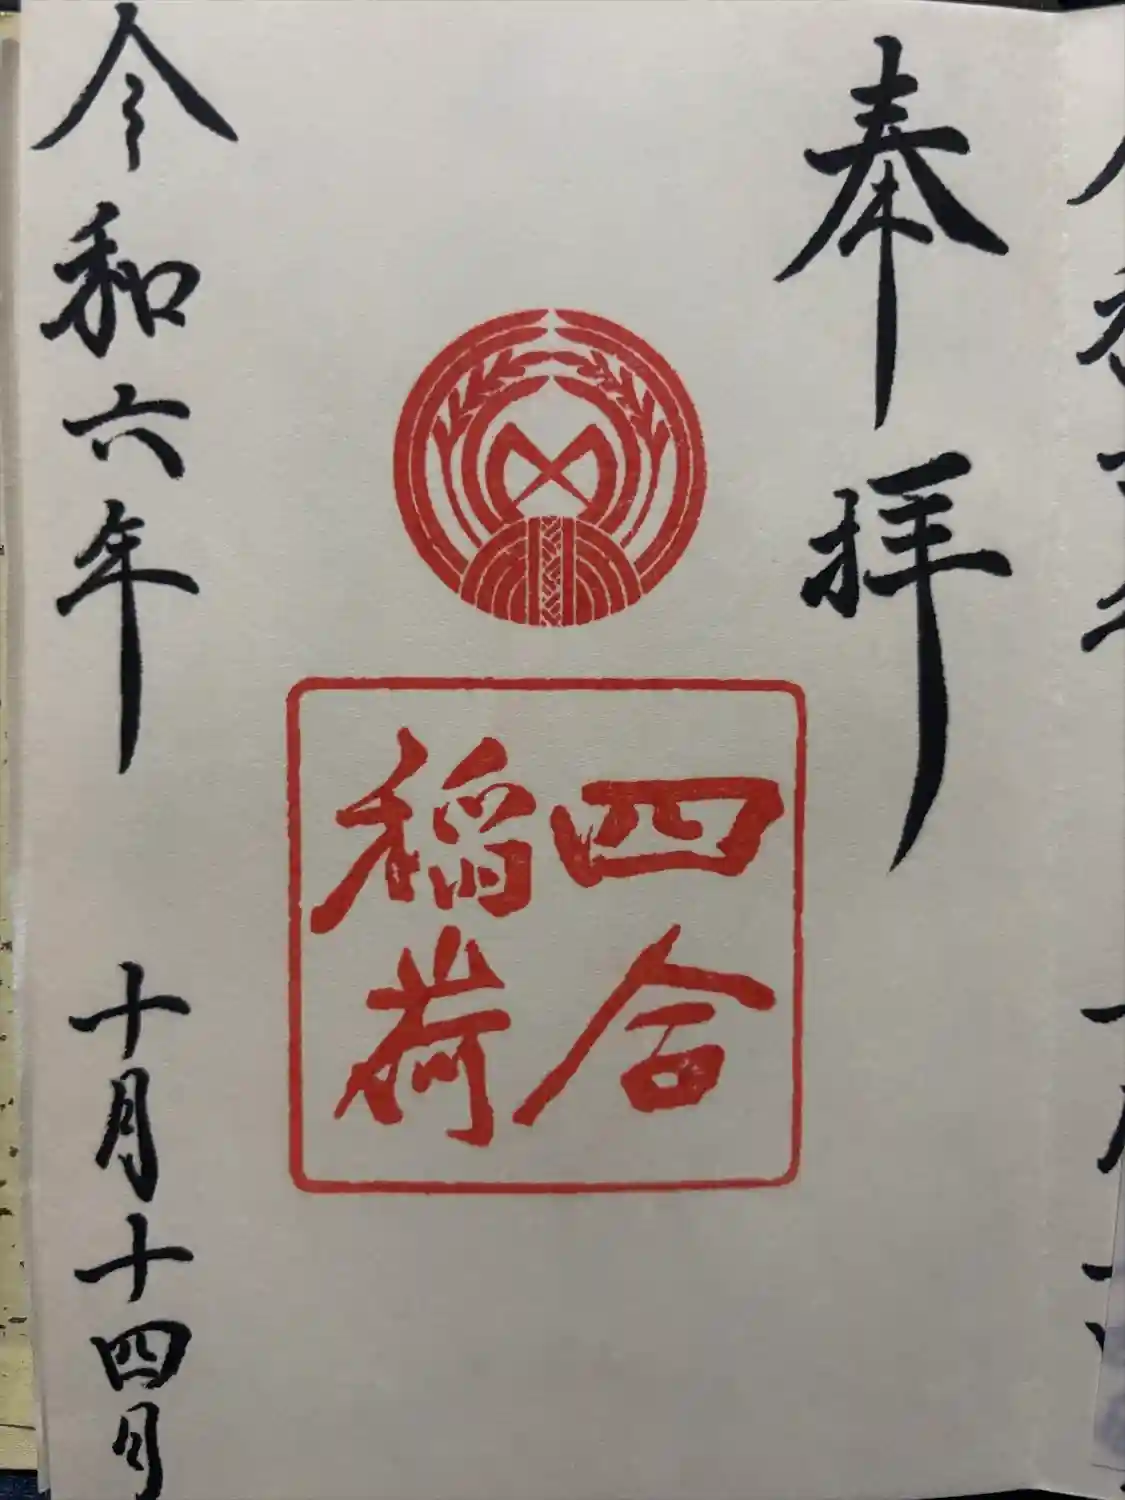 奉拝
四合
稲荷
令和六年 十月十四月